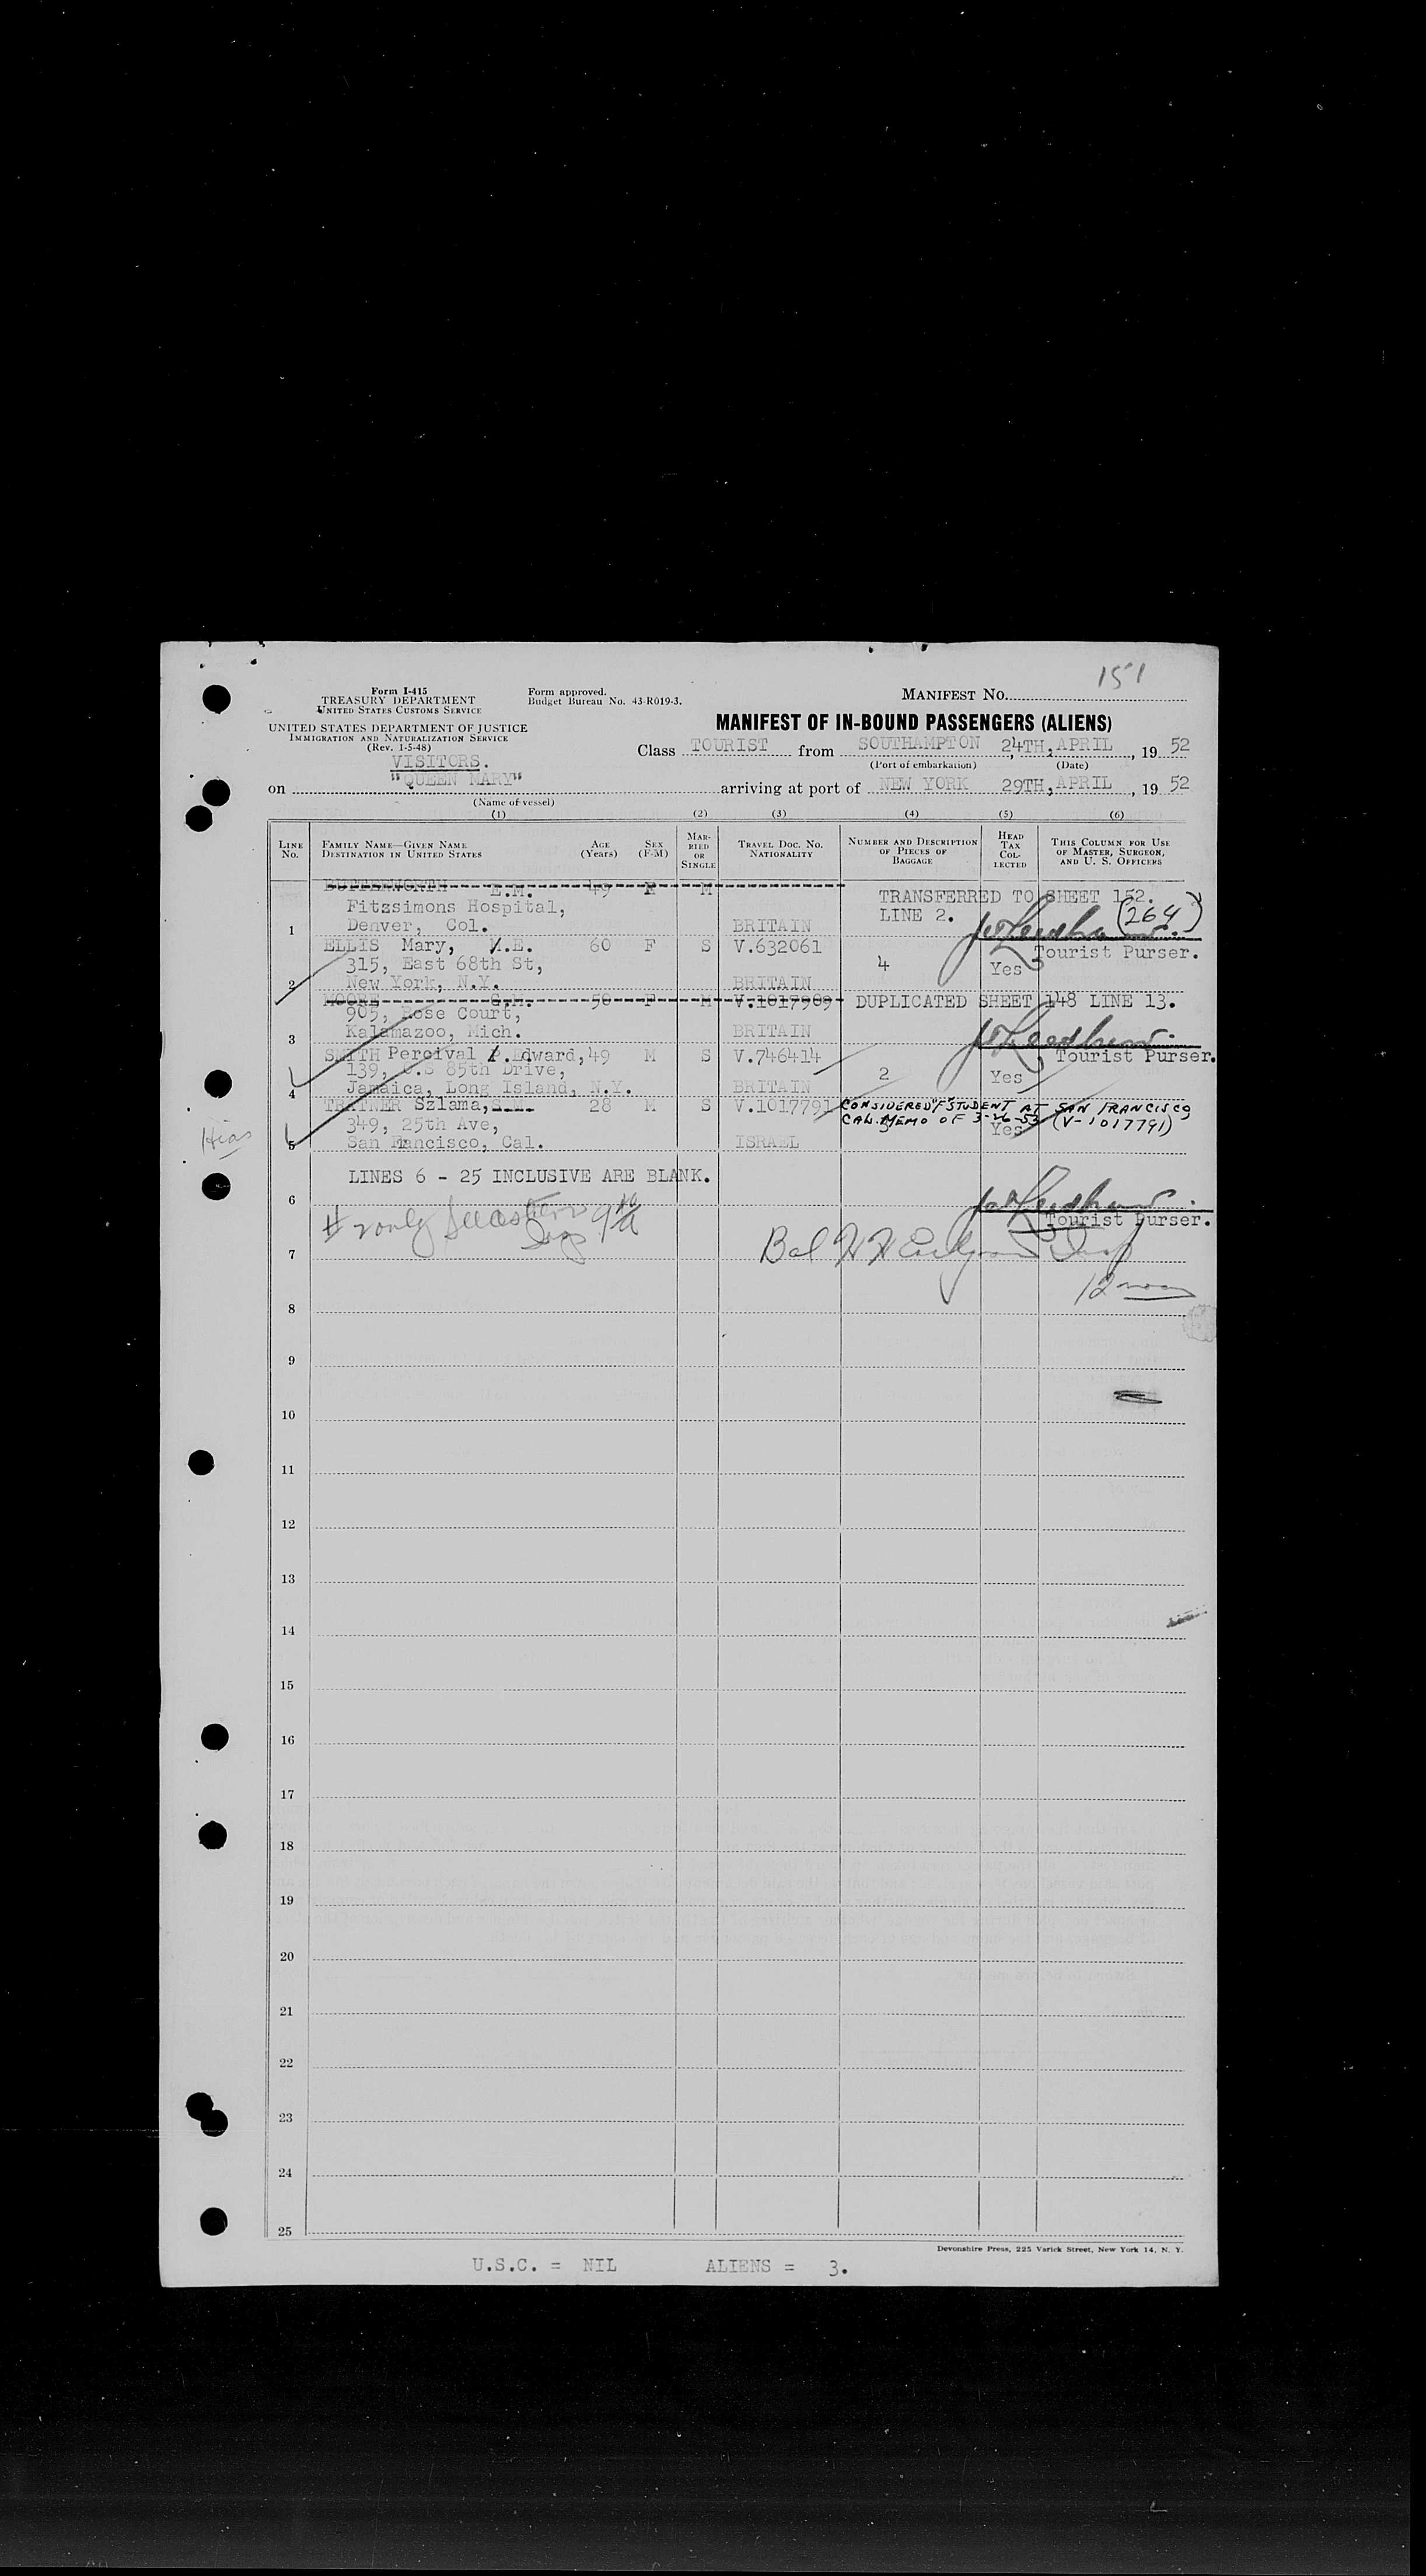 151
Form I-415
TREASURY DEPARTMENT
UNITED STATES CUSTOMS SERVICE
Form approved.
Budget Bureau No. 43-R019-3.
MANIFEST No.
UNITED STATES DEPARTMENT OF JUSTICE
IMMIGRATION AND NATURALIZATION SERVICE
(Rev. 1-5-48)
MANIFEST OF IN-BOUND PASSENGERS (ALIENS)
VISITORS.
Class TOURIST from SOUTHAMPTON 24TH, APRIL, 19 52
(Port of embarkation) (Date)
on "QUEEN MARY" arriving at port of NEW YORK 29TH, APRIL, 19 52
(Name of vessel)
(1) (2) (3) (4) (5) (6)
LINE No. FAMILY NAME—GIVEN NAME DESTINATION IN UNITED STATES AGE (Years) SEX (F-M) MARRIED OR SINGLE TRAVEL DOC. NO. NATIONALITY NUMBER AND DESCRIPTION OF PIECES OF BAGGAGE HEAD TAX COLLECTED THIS COLUMN FOR USE OF MASTER, SURGEON, AND U. S. OFFICERS
BUTTERWORTH E.M. 49 F M TRANSFERRED TO SHEET 152.
Fitzsimons Hospital, LINE 2. (264)
1 Denver, Col. BRITAIN
ELLIS Mary, E. 60 F S V.632061 Tourist Purser.
315, East 68th St, 4 Yes
2 New York, N.Y. BRITAIN
MOORE G.M. 50 F M V.1017909 DUPLICATED SHEET 148 LINE 13.
905, Rose Court,
3 Kalamazoo, Mich. BRITAIN
SMITH Percival Edward, 49 M S V.746414 Tourist Purser.
139, 85th Drive, 2 Yes
4 Jamaica, Long Island, N.Y. BRITAIN
TRAJNER Szlama, 28 M S V.1017791 CONSIDERED "F" STUDENT AT SAN FRANCISCO
349, 25th Ave, CAL. MEMO OF 3-26-53 (V-1017791)
Yes
Hias 5 San Francisco, Cal. ISRAEL
LINES 6 - 25 INCLUSIVE ARE BLANK.
6
Tourist Purser.
# 2 only
7 Bal
12 noon
8
9
10
11
12
13
14
15
16
17
18
19
20
21
22
23
24
25
Devonshire Press, 225 Varick Street, New York 14, N. Y.
U.S.C. = NIL ALIENS = 3.